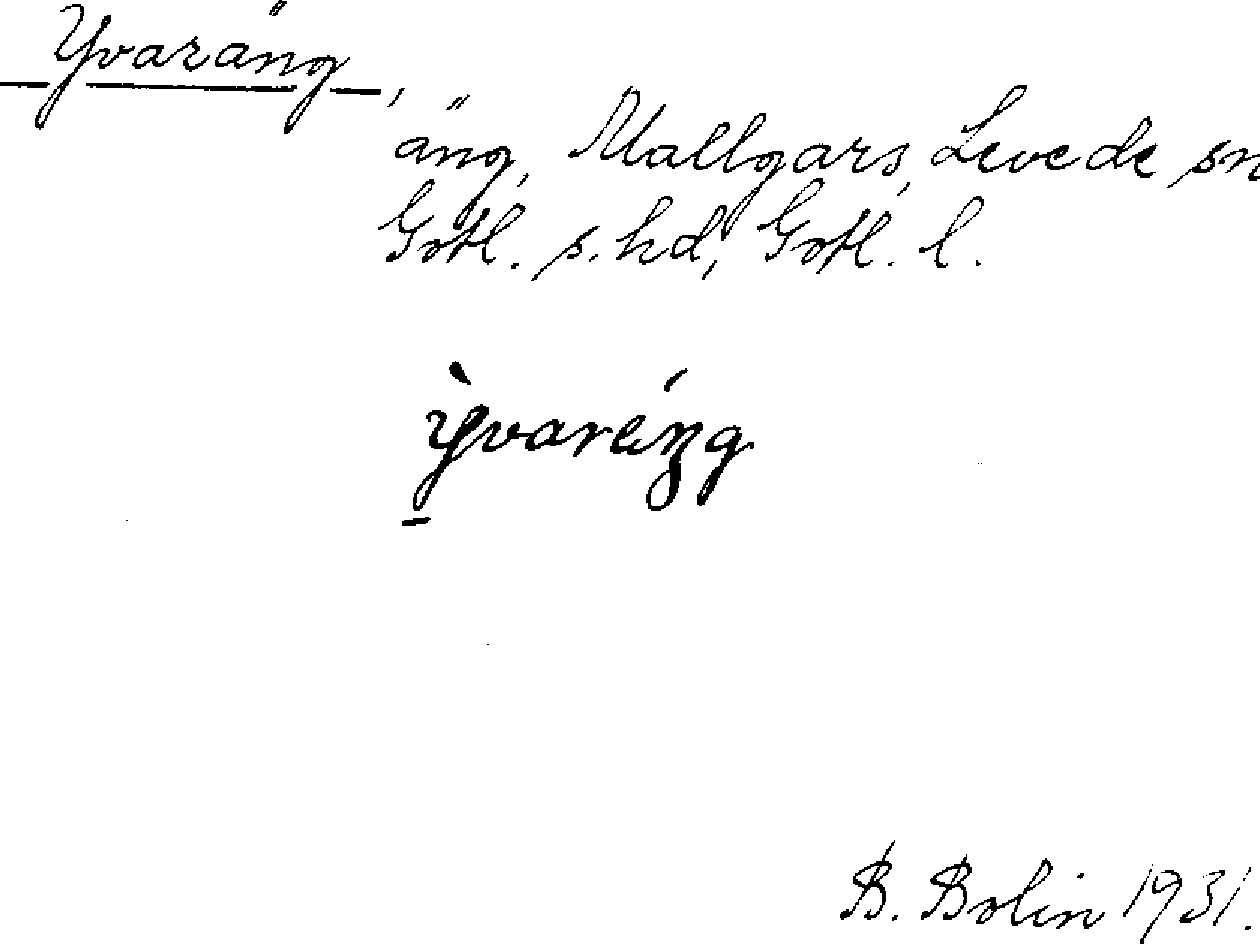 Yvaräng,
äng, Mallgars, Levede sn
Gotl. s. hd, Gotl. l.
ỳvaréŋg
B. Bolin 1931.